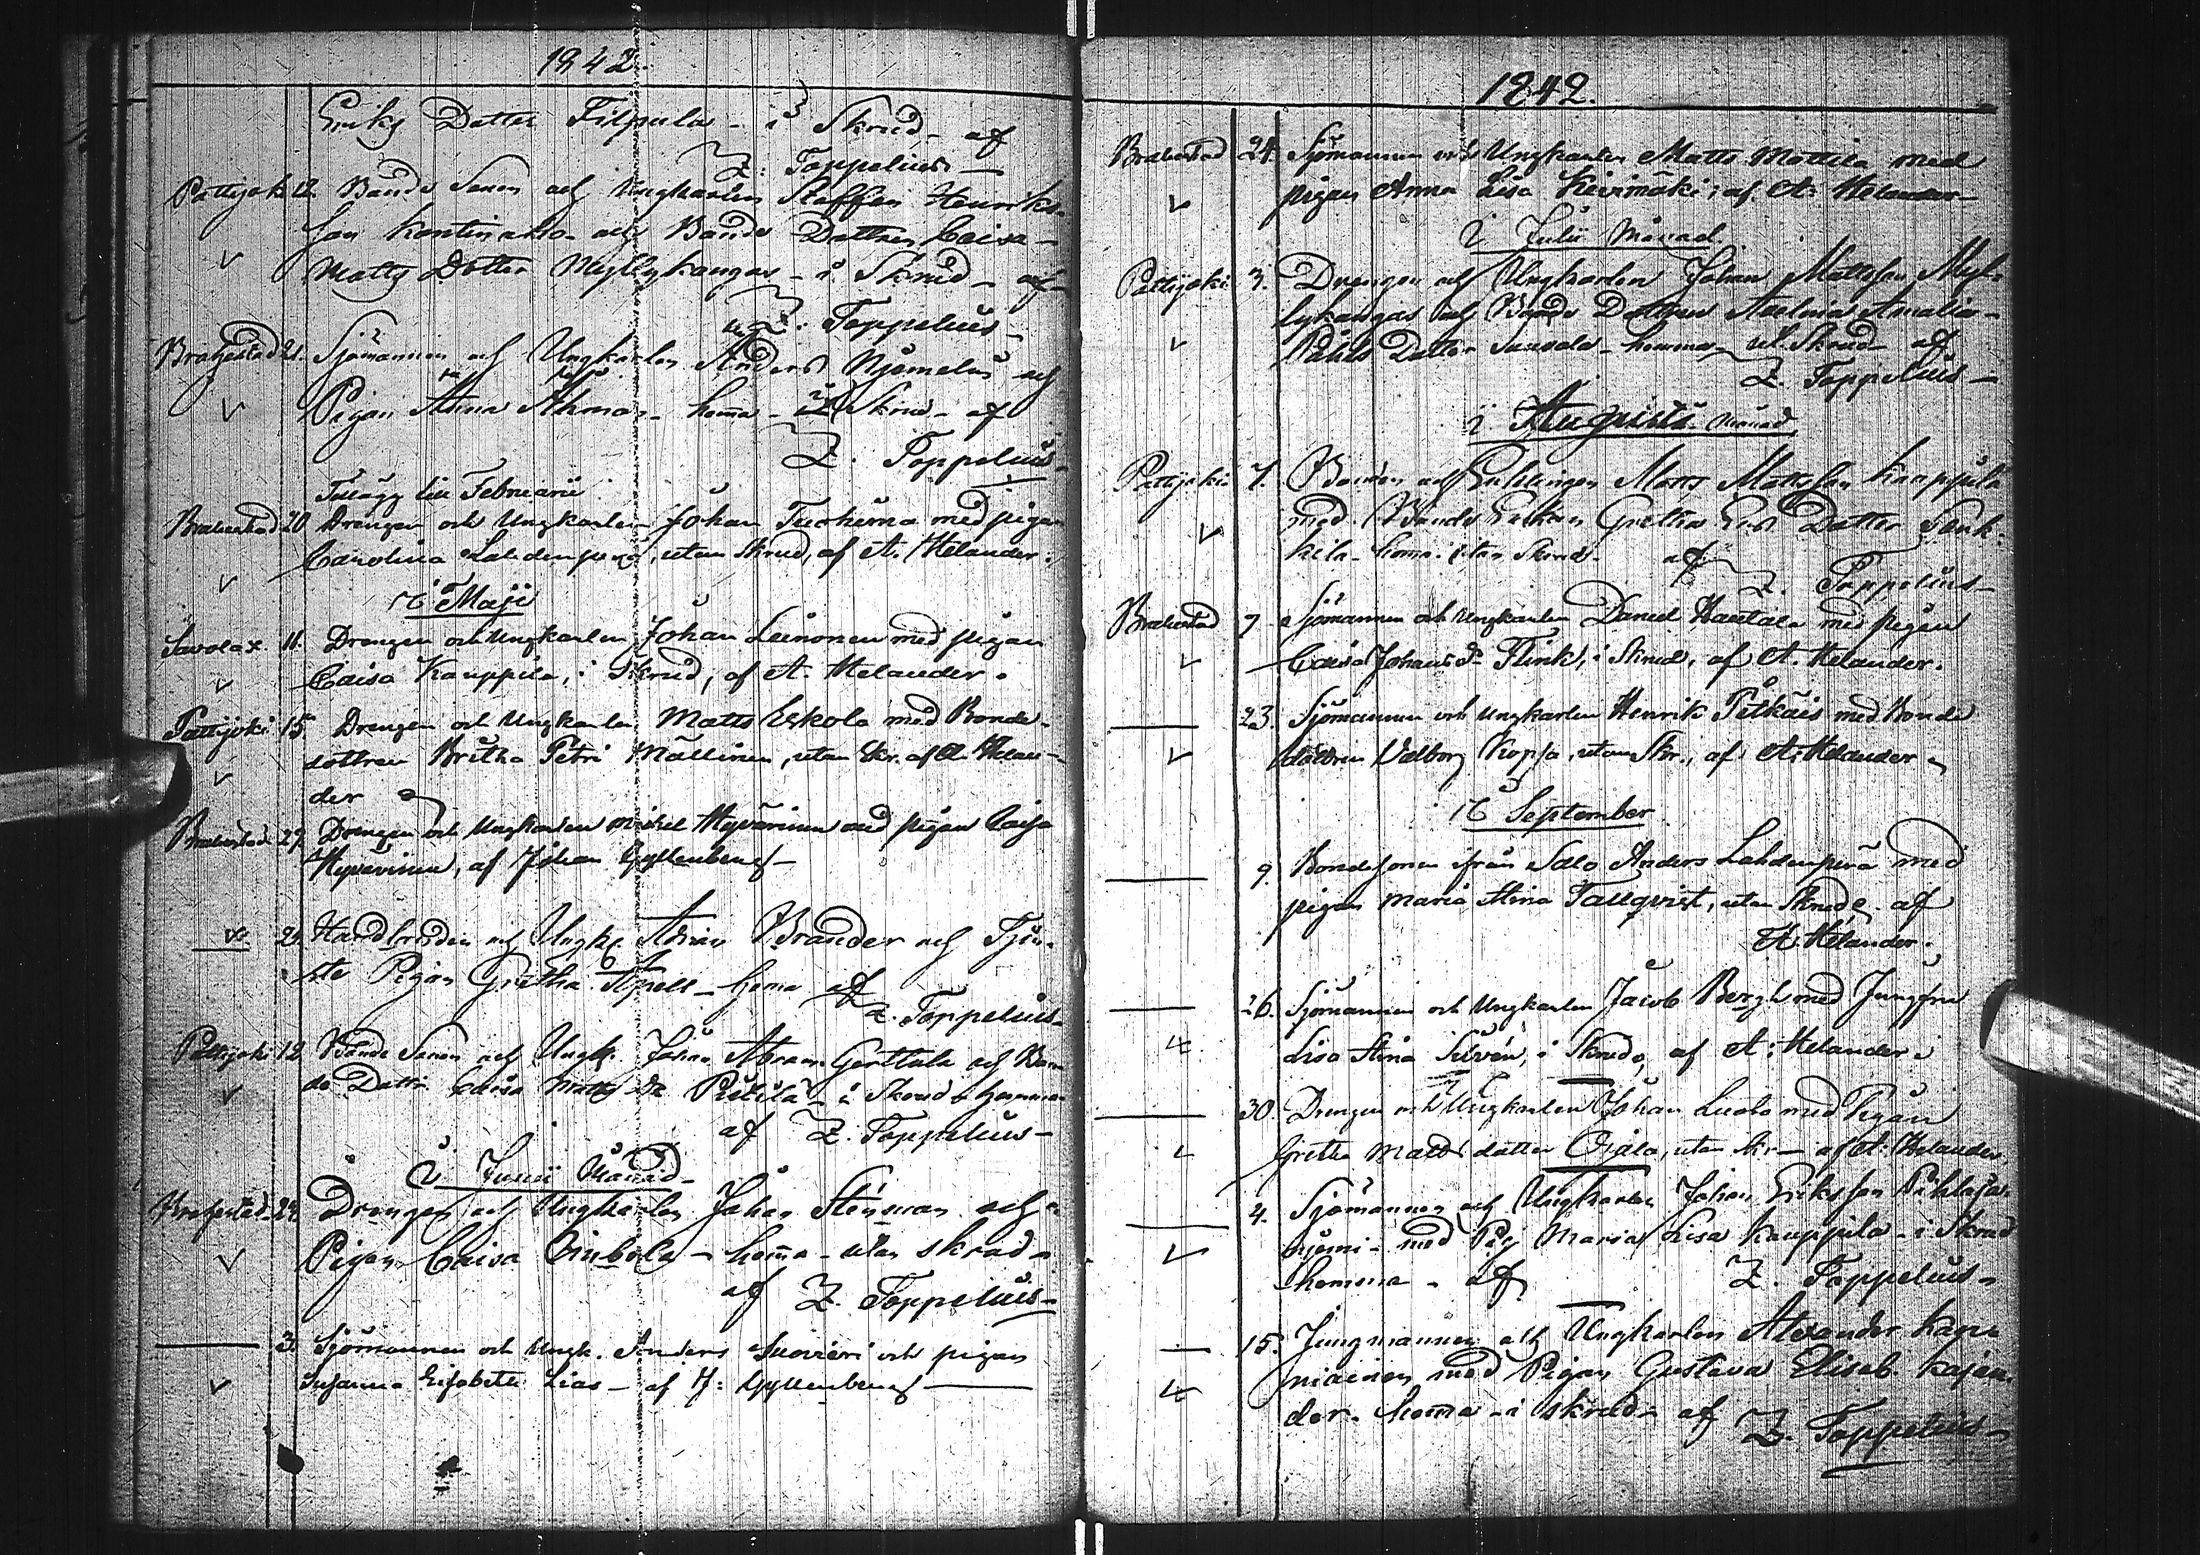 1842.
Eriks Dotter Filpula - i Skrud - af
Z. Toppelius -
Pattijoki 12. Bonde Sonen och Ungkarlen Staffen Henriks-
son Kontinaho - och Bonde Dottren Caisa -
Matts Dotter Myllykangas - i Skrud - af
Z. Toppelius -
Brahestad 21. Sjömannen och Ungkarlen Anders och
Pigan Stina - homa - Skrud - af
Z. Toppelius -
Tillägg till Februarii
Brahestad 20 Drengen och Ungkarlen Johan med pigan
Carolina Lahdenperä, utan Skrud, af A. Helander.
i Maji
Savolax 11. Drengen och Ungkarlen Johan Leinonen med pigan
Caisa Kauppila, i Skrud, af A. Helander.
Pattijoki 15. Drengen och Ungkarlen Matts Eskola med Bonde-
dottren Britha Petri Mällinen, utan Skr. af A. Helan-
der
Brahestad 29. Drengen och Ungkarlen Mickel Hyvärinen med pigan Caisa
Hyvärinen, af Johan Gyllenberg -
29. och Ungk. Brander och Tjen-
ste Pigan Gretha - homa af
Z. Toppelius -
Pattijoki 12. Bonde Sonen och Ungk. Johan Abram Gerttula och Bon-
de Dottr. Caisa Matts Dr - i Skrud hemma
af Z. Toppelius -
i Junii Månad -
Brahestad 24. Drengen och Ungkarlen Johan Stenman och
Pigan Caisa - homa - utan skrud -
af Z. Toppelius -
3. Sjömannen och Ungk. Anders och pigan
Susanna Elisabeth Lias - af J: Gyllenberg -
1842.
Brahestad 24. Sjömannen och Ungkarlen Matts Mattila med
pigan Anna Lisa Keinmäki, af A. Helander -
i Julii Månad.
Pattijoki 3. Drengen och Ungkarlen Johan Mattsson Myl-
lykangas och Bonde Dottren Amalia -
Påhls Dotter - hemma - ut. Skrud af
Z. Toppelius -
i Augusti Månad
Pattijoki 7. Bonden och Enklingen Matts Mattsson Kauppila
med Bonde Enkan Gretha Dotter
kila - homa utan Skrud - af
Z. Toppelius -
Brahestad 7 Sjömannen och Ungkarlen Daniel Hautala med pigan
Caisa Johans Dr Flink, i Skrud, af A. Helander.
23. Sjömannen och Ungkarlen Henrik Pitkäis med Bonde
dottren Valborg Kopsa, utan Skr., af A. Helander
i September
9. Bondesonen ifrån Salo Anders Lahdenperä med
pigan Maria Stina Tallqvist, utan Skrud, af
A. Helander.
26. Sjömannen och Ungkarlen Jacob Bergh med Jungfrun
Lisa Stina Silvén, i Skrud, af A: Helander
30. Drengen och Ungkarlen Johan Luoto med Pigan
Gretha Matts dotter Ojala, utan Skr - af A: Helander.
4. Sjömannen och Ungkarlen Johan Eriksson Pihlaja-
niemi - med Pig Maria Lisa Kauppila - i Skrud
hemma - af Z. Toppelius -
15. Jungmannen och Ungkarlen Alexander
med Pigan Gustava Elisab. Kajan-
der - homa - i skrud - af Z. Toppelius -